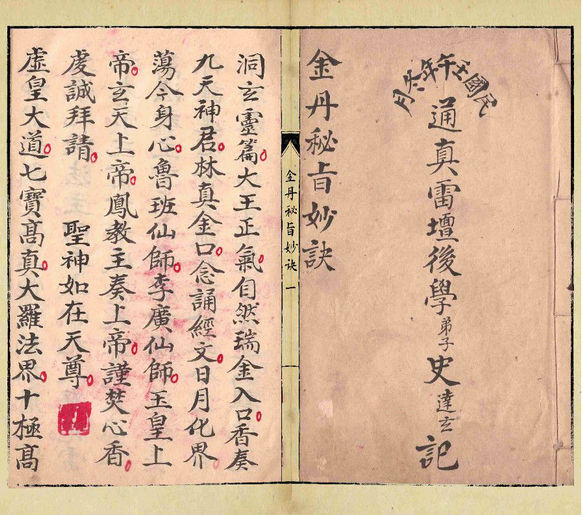 民國壬午年六月
通真雷壇後學弟子史達玄記
金丹秘旨妙訣
金丹秘旨妙訣 一
洞玄靈篇大王正氣自然瑞金入口香奏
九天神君林真金口念誦經文日月化界
蕩今身心魯班仙師李廣仙師王皇上
帝玄天上帝鳳教主奏上帝謹焚心香
虔誠拜請 聖神如在天尊
虛皇大道七寶髙真大羅法界十極髙